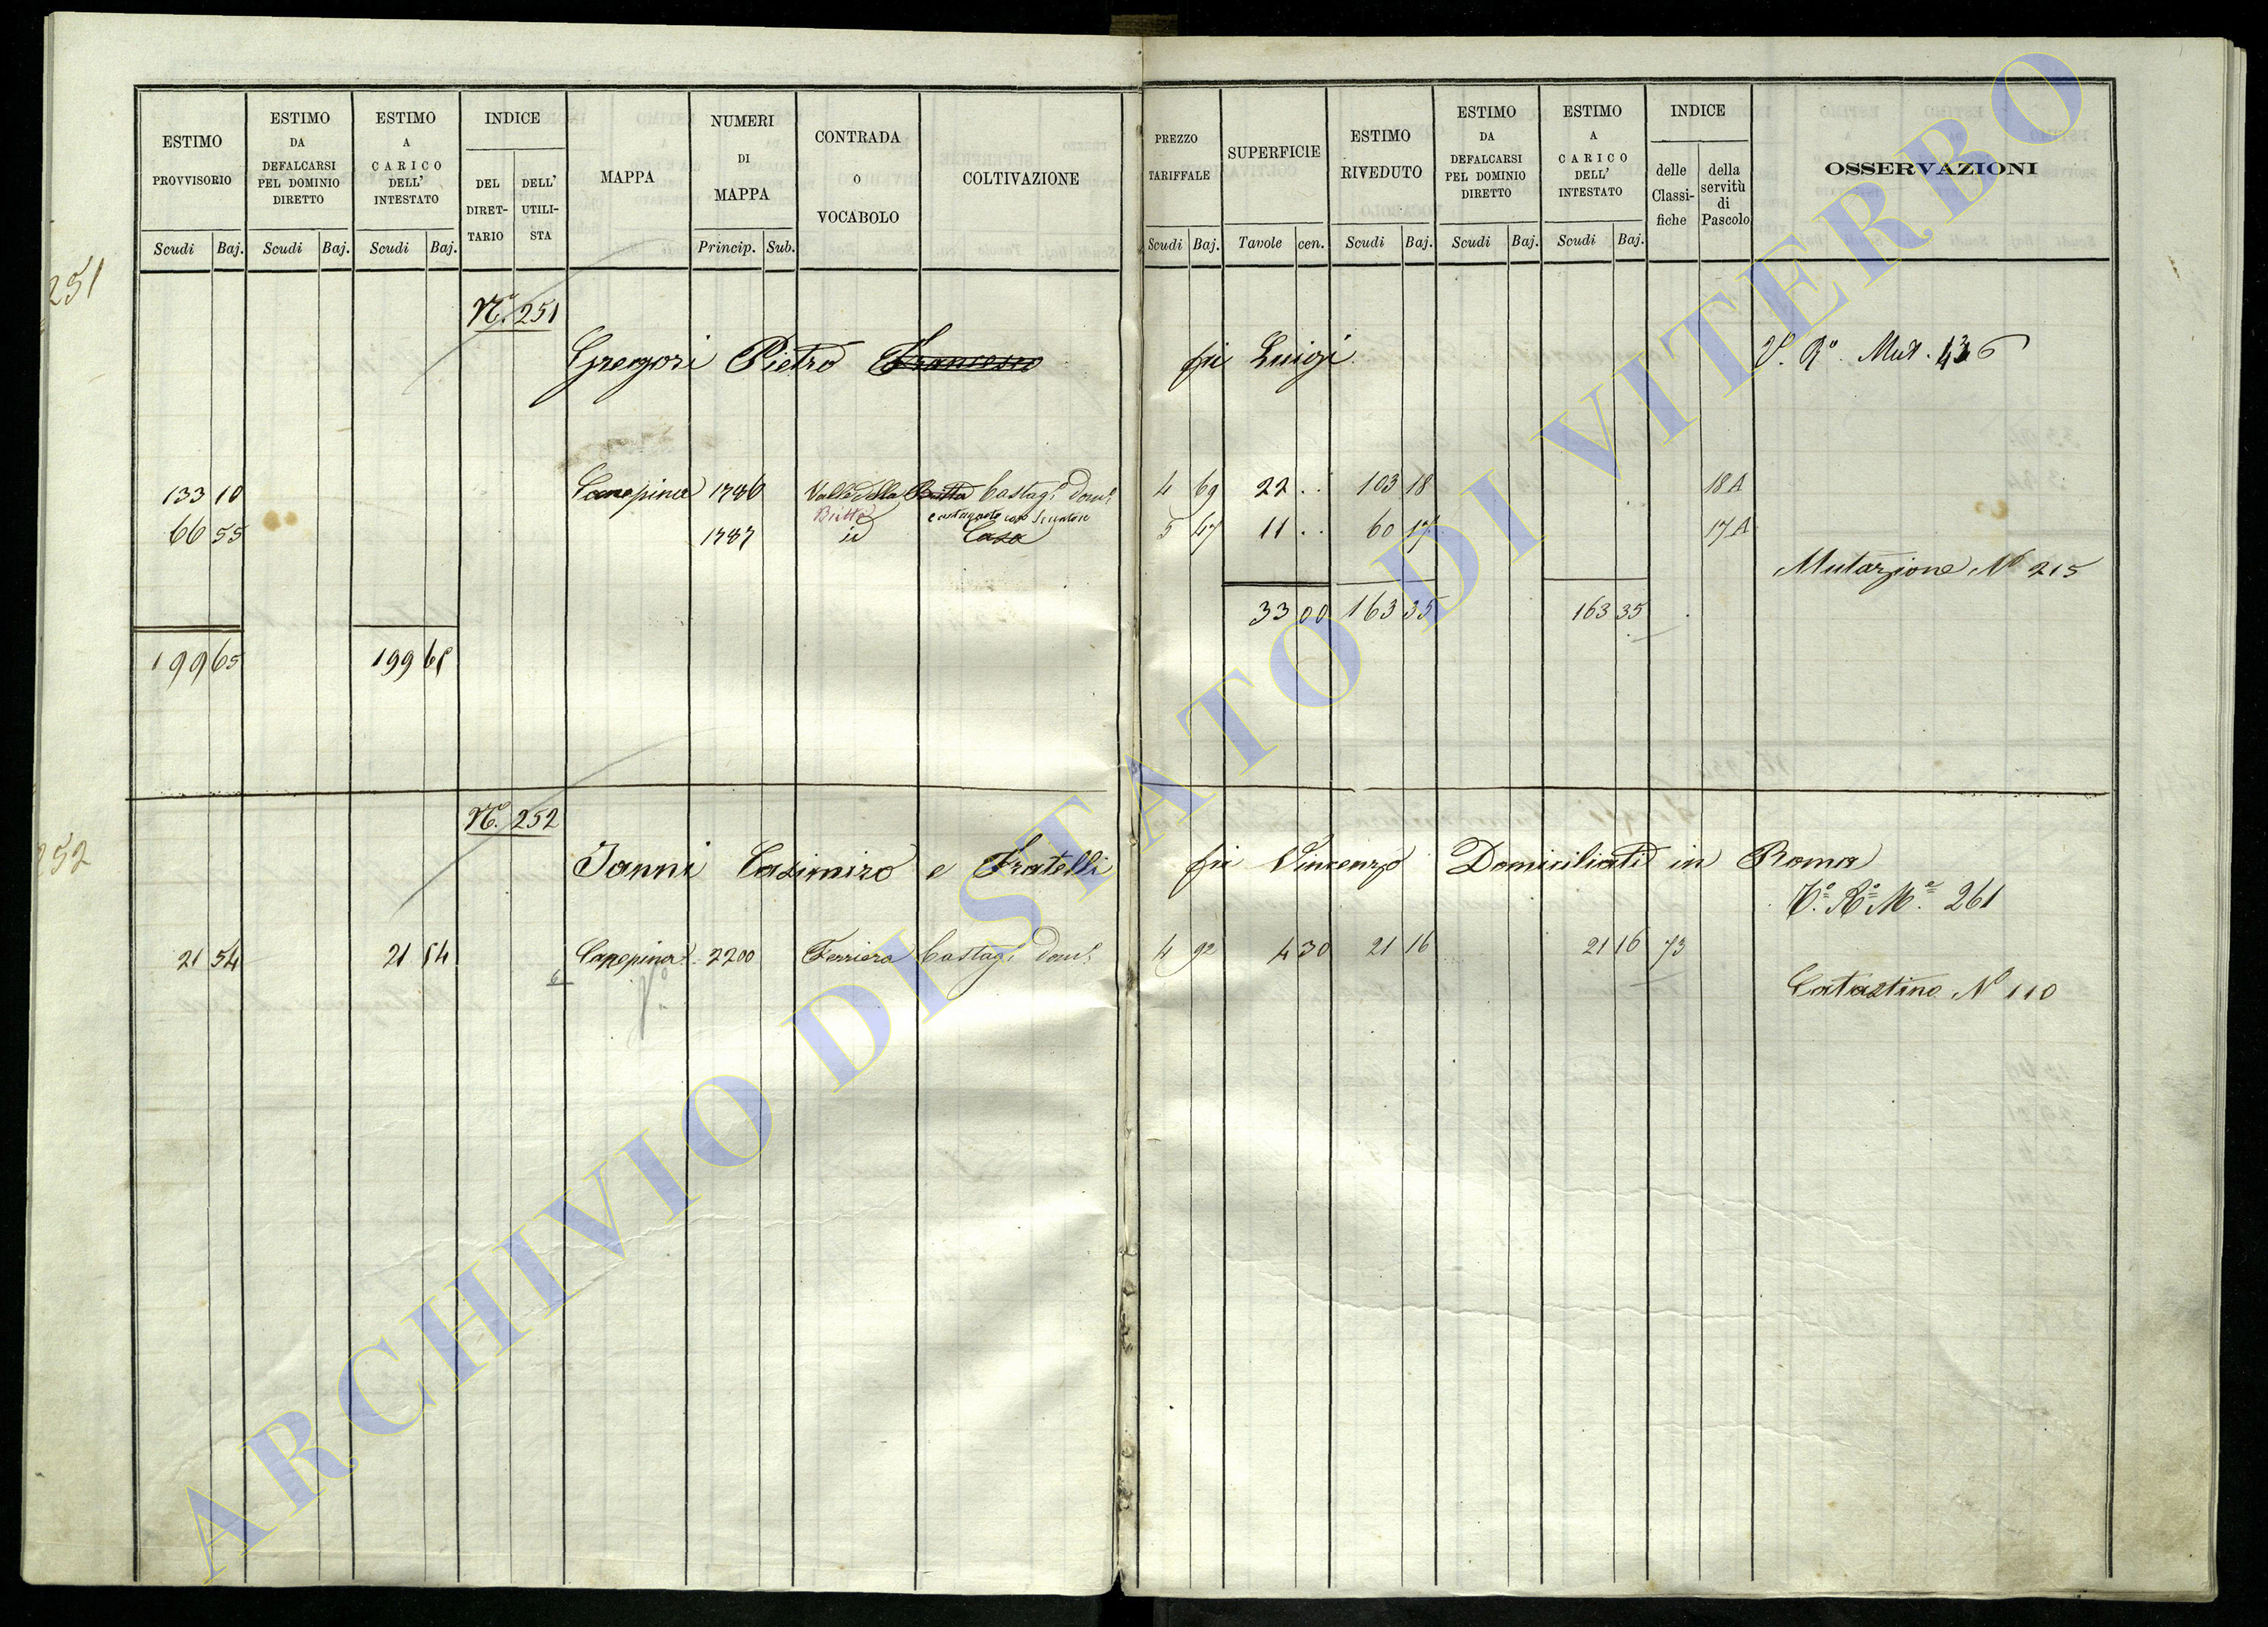 ESTIMO PROVVISORIO
Scudi Baj.
ESTIMO DA DEFALCARSI PEL DOMINIO DIRETTO
Scudi Baj.
ESTIMO A CARICO DELL' INTESTATO
Scudi Baj.
INDICE
DEL DIRET-TARIO
DELL' UTILI-STA
MAPPA
NUMERI DI MAPPA
Princip. Sub.
CONTRADA O VOCABOLO
COLTIVAZIONE
PREZZO TARIFFALE
Scudi Baj.
SUPERFICIE
Tavole cen.
ESTIMO RIVEDUTO
Scudi Baj.
ESTIMO DA DEFALCARSI PEL DOMINIO DIRETTO
Scudi Baj.
ESTIMO A CARICO DELL' INTESTATO
Scudi Baj.
INDICE
delle Classi-fiche
della servitù di Pascolo
OSSERVAZIONI
251
No. 251
Gregori Pietro Francesco fu Luigi V. Ro. Mut. 436
133 10 Canepina 1786 Valle della Brutta Castagi. Dom. 4 69 22 . . 103 18 18A
Britta castagneto con Seccatore
66 55 1787 id Casa 5 47 11 . . 60 17 17A
Mutazione No 215
33 00 163 35 163 35
199 65 199 65
252
No. 252
Ianni Casimiro e Fratelli fu Vincenzo Domiciliati in Roma
V. R. M. 261
21 54 21 54 Canepina 2200 Ferriera Castagi. Dom. 4 92 4 30 21 16 21 16 73
6
Catastino No 110
ARCHIVIO DI STATO DI VITERBO